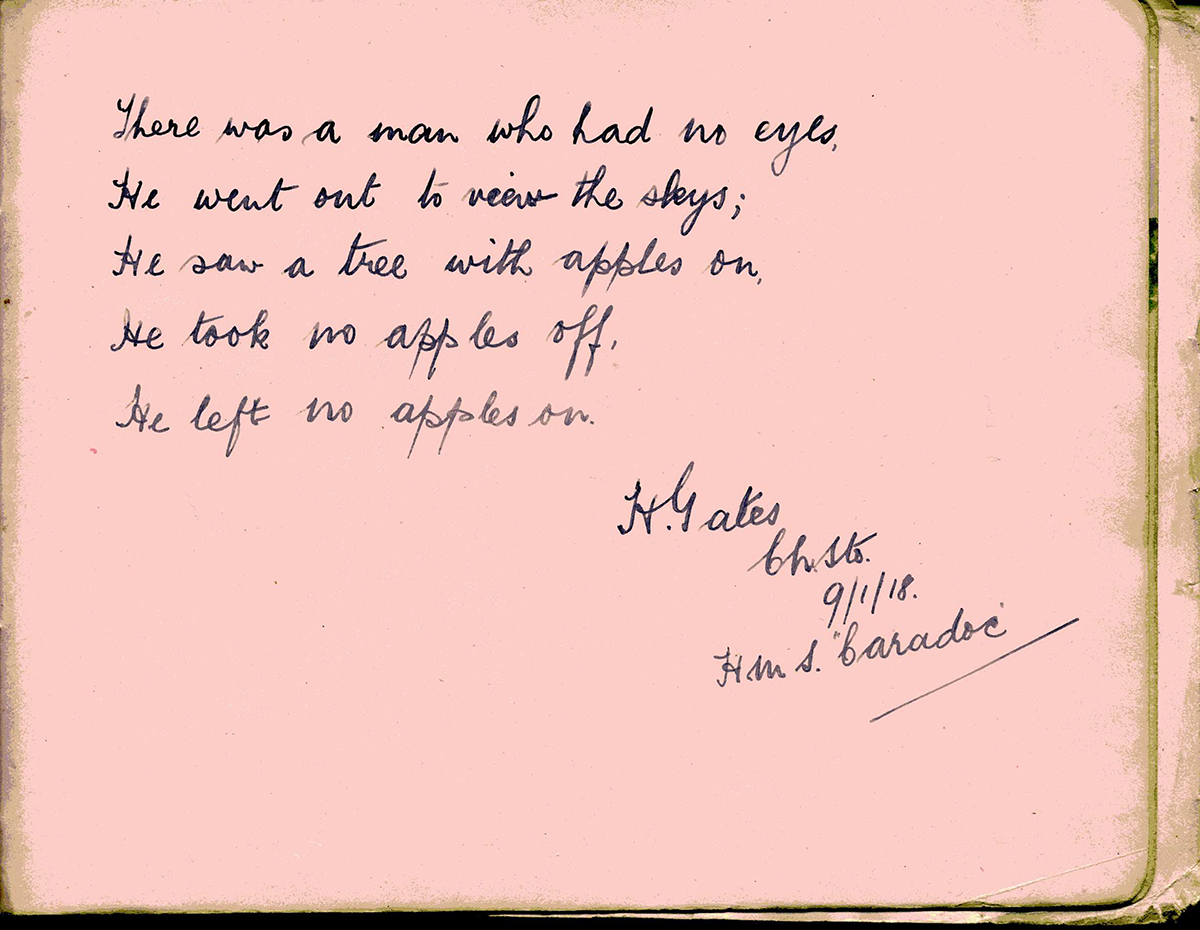 There was a man who had no eyes,
He went out to view the skys;
He saw a tree with apples on,
He took no apples off,
He left no apples on.
H. Gates
Ch. Sto.
9/1/18.
H m S. "Caradoc"